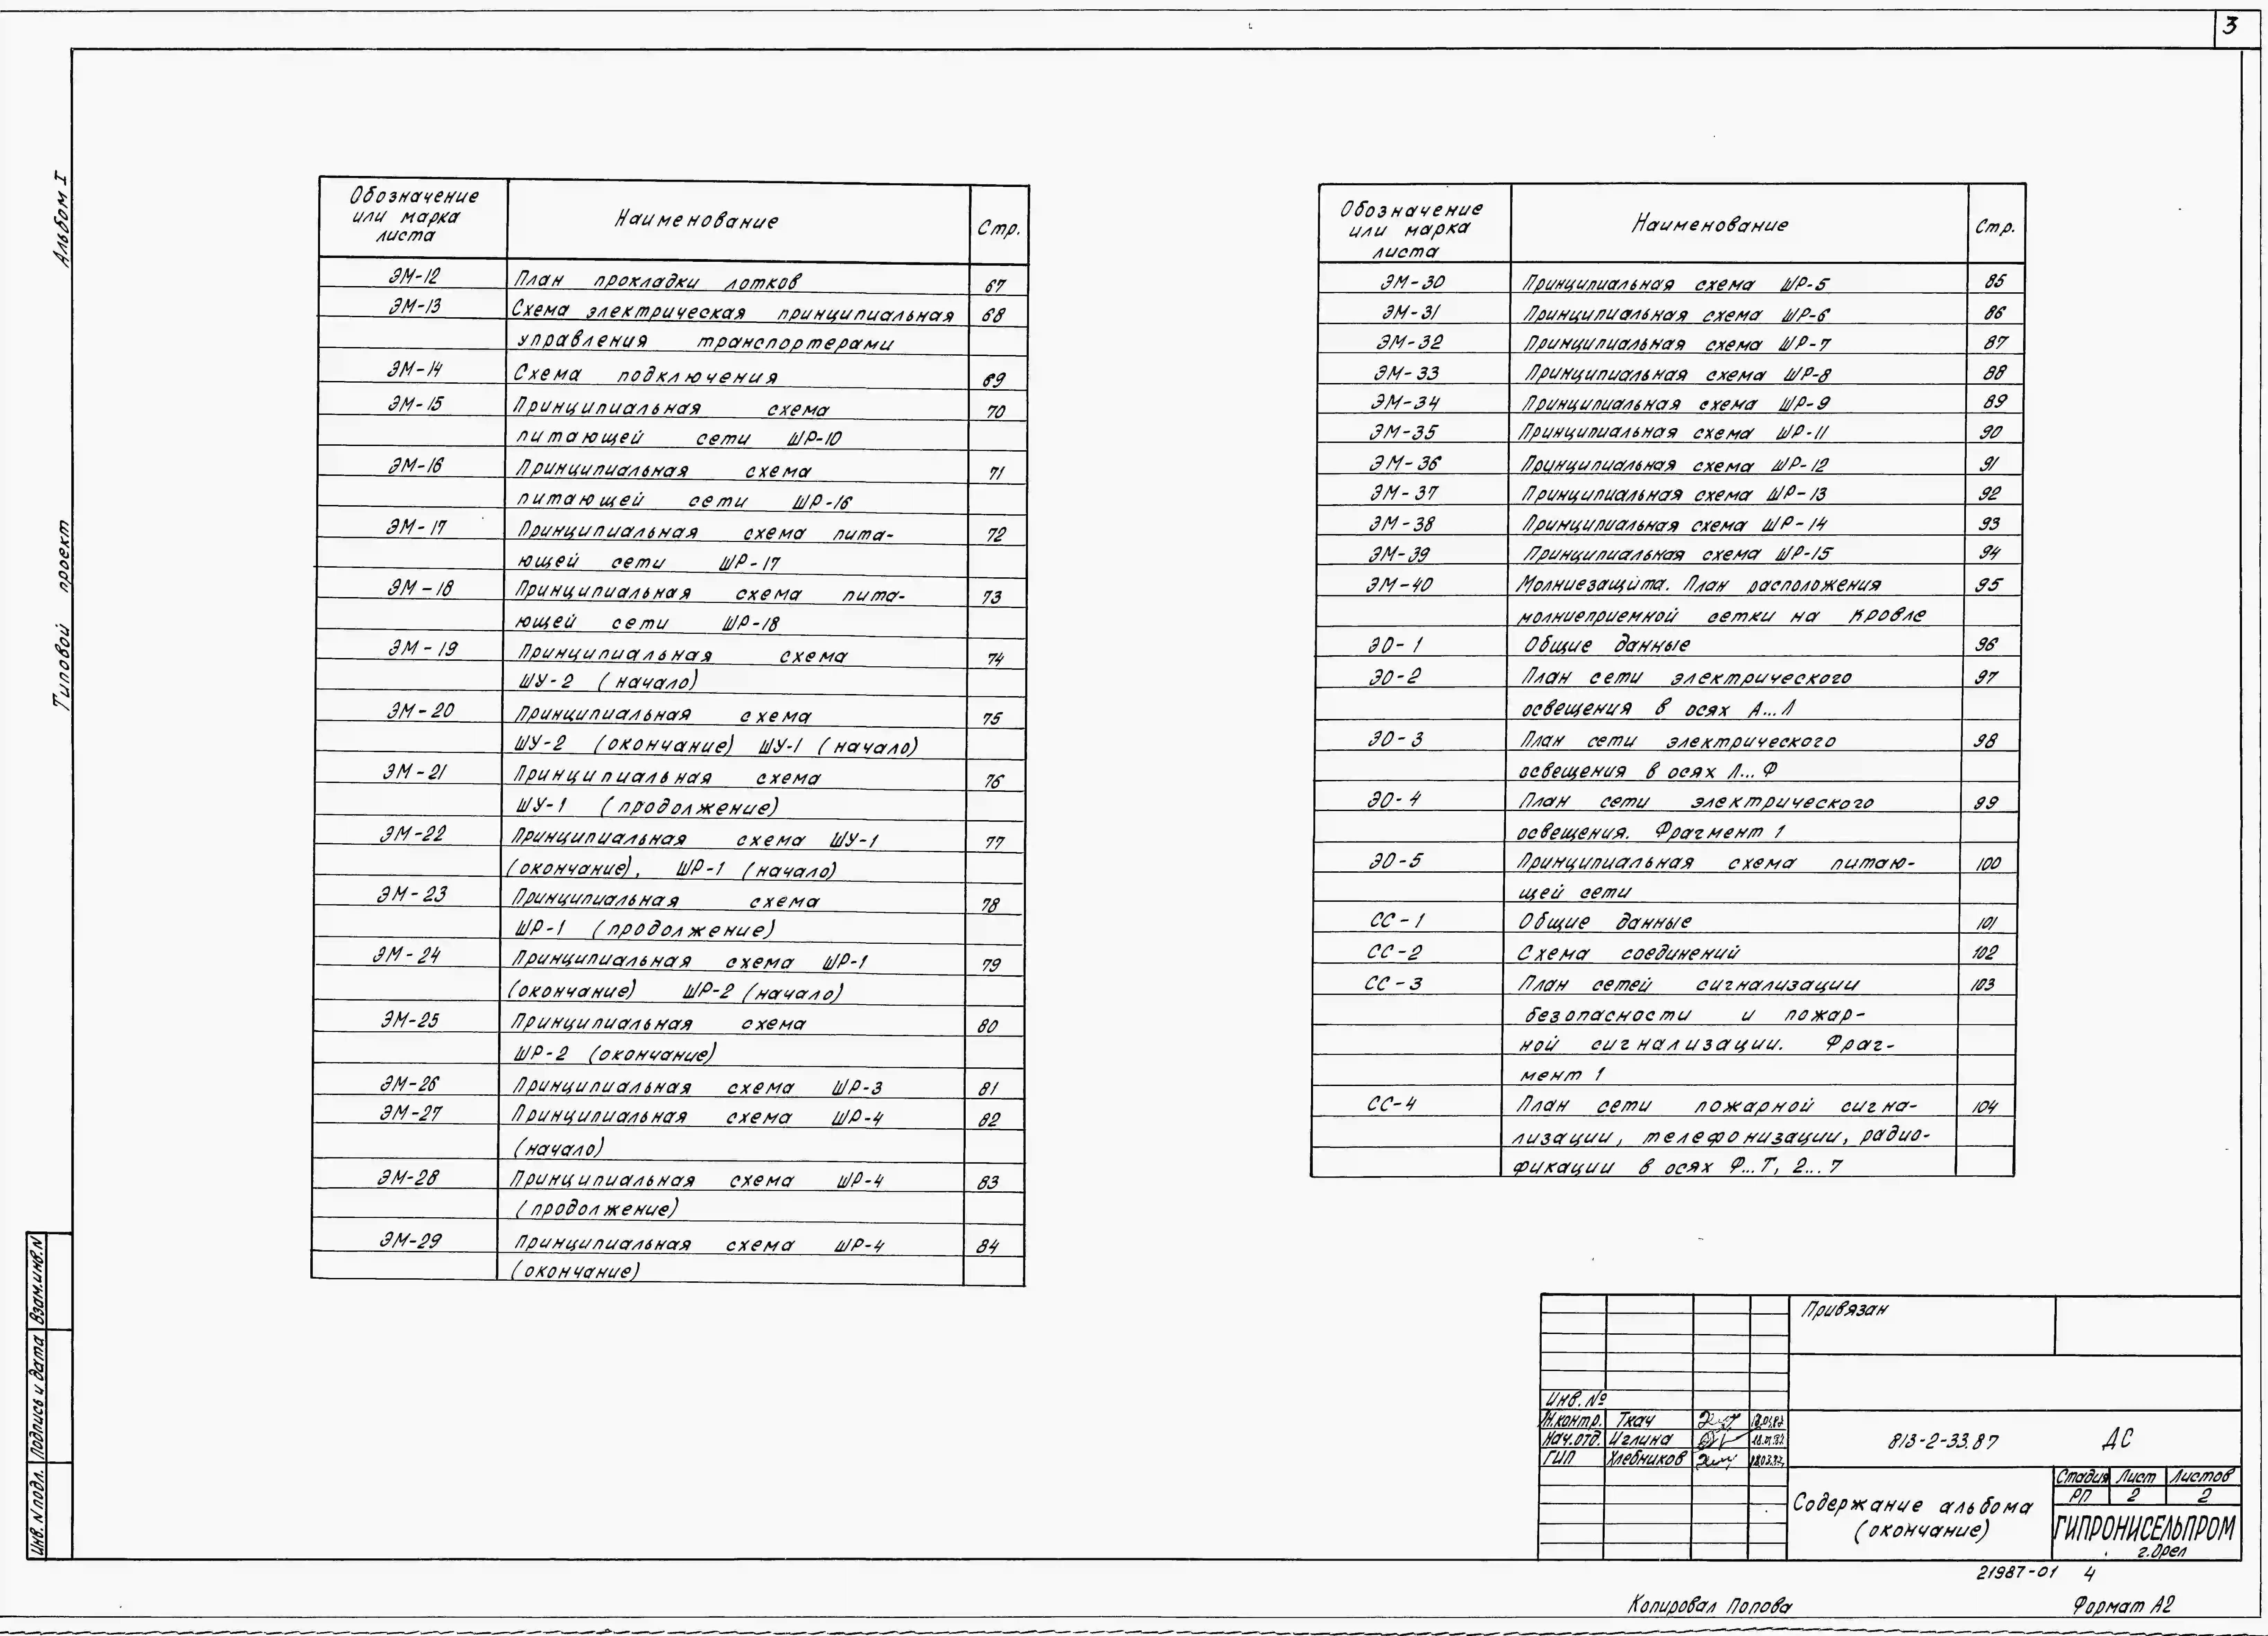 3
Альбом I
Типовой проект
Обозначение или марка листа Наименование Стр.
ЭМ-12 План прокладки лотков 67
ЭМ-13 Схема электрическая принципиальная 68
управления транспортерами
ЭМ-14 Схема подключения 69
ЭМ-15 Принципиальная схема 70
питающей сети ШР-10
ЭМ-16 Принципиальная схема 71
питающей сети ШР-16
ЭМ-17 Принципиальная схема пита- 72
ющей сети ШР-17
ЭМ-18 Принципиальная схема пита- 73
ющей сети ШР-18
ЭМ-19 Принципиальная схема 74
ШУ-2 (начало)
ЭМ-20 Принципиальная схема 75
ШУ-2 (окончание) ШУ-1 (начало)
ЭМ-21 Принципиальная схема 76
ШУ-1 (продолжение)
ЭМ-22 Принципиальная схема ШУ-1 77
(окончание), ШР-1 (начало)
ЭМ-23 Принципиальная схема 78
ШР-1 (продолжение)
ЭМ-24 Принципиальная схема ШР-1 79
(окончание) ШР-2 (начало)
ЭМ-25 Принципиальная схема 80
ШР-2 (окончание)
ЭМ-26 Принципиальная схема ШР-3 81
ЭМ-27 Принципиальная схема ШР-4 82
(начало)
ЭМ-28 Принципиальная схема ШР-4 83
(продолжение)
ЭМ-29 Принципиальная схема ШР-4 84
(окончание)
Обозначение или марка листа Наименование Стр.
ЭМ-30 Принципиальная схема ШР-5 85
ЭМ-31 Принципиальная схема ШР-6 86
ЭМ-32 Принципиальная схема ШР-7 87
ЭМ-33 Принципиальная схема ШР-8 88
ЭМ-34 Принципиальная схема ШР-9 89
ЭМ-35 Принципиальная схема ШР-11 90
ЭМ-36 Принципиальная схема ШР-12 91
ЭМ-37 Принципиальная схема ШР-13 92
ЭМ-38 Принципиальная схема ШР-14 93
ЭМ-39 Принципиальная схема ШР-15 94
ЭМ-40 Молниезащита. План расположения 95
молниеприемной сетки на кровле
ЭО-1 Общие данные 96
ЭО-2 План сети электрического 97
освещения в осях А...Л
ЭО-3 План сети электрического 98
освещения в осях Л...Ф
ЭО-4 План сети электрического 99
освещения. Фрагмент 1
ЭО-5 Принципиальная схема питаю- 100
щей сети
СС-1 Общие данные 101
СС-2 Схема соединений 102
СС-3 План сетей сигнализации 103
безопасности и пожар-
ной сигнализации. Фраг-
мент 1
СС-4 План сети пожарной сигна- 104
лизации, телефонизации, радио-
фикации в осях Ф...Т, 2...7
Инв. N подл. Подпись и дата Взам.инв.N
Привязан
Инв. №
Н.контр. Ткач
Нач.отд. Иглина
ГИП Хлебников
813-2-33.87 ДС
Содержание альбома
(окончание)
Стадия Лист Листов
РП 2 2
ГИПРОНИСЕЛЬПРОМ
г.Орел
21987-01 4
Копировал Попова Формат А2